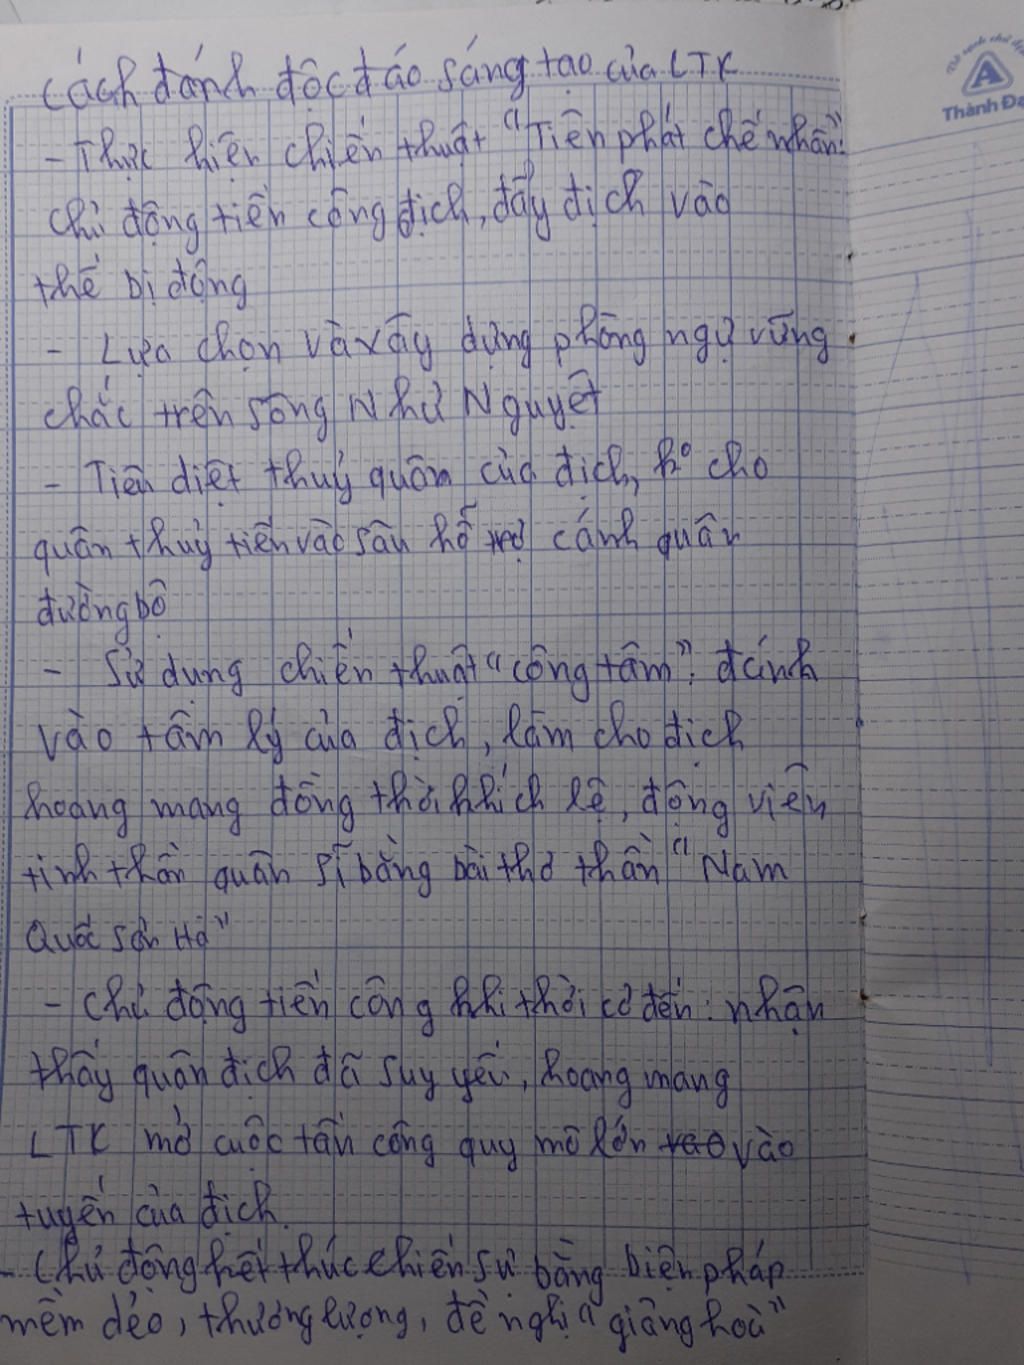 Cách đánh độc đáo sáng tạo của LTK
Thành Đạ
- Thực hiện chiến thuật "Tiên phát chế nhân":
Chủ động tiến công địch, đẩy địch vào
thế bị động
- Lựa chọn và xây dựng phòng ngự vững
chắc trên sông Như Nguyệt
- Tiêu diệt thuỷ quân của địch, ko cho
quân thuỷ tiến vào sâu hỗ trợ cánh quân
đường bộ
- Sử dụng chiến thuật "công tâm": đánh
vào tâm lý của địch, làm cho địch
hoang mang đồng thời khích lệ, động viên
tinh thần quân sĩ bằng bài thơ thần "Nam
Quốc Sơn Hà"
- Chủ động tiến công khi thời cơ đến: nhận
thấy quân địch đã suy yếu, hoang mang
LTK mở cuộc tấn công quy mô lớn vào
tuyến của địch.
- Chủ động kết thúc chiến sự bằng biện pháp
mềm dẻo, thương lượng, đề nghị "giảng hoà"